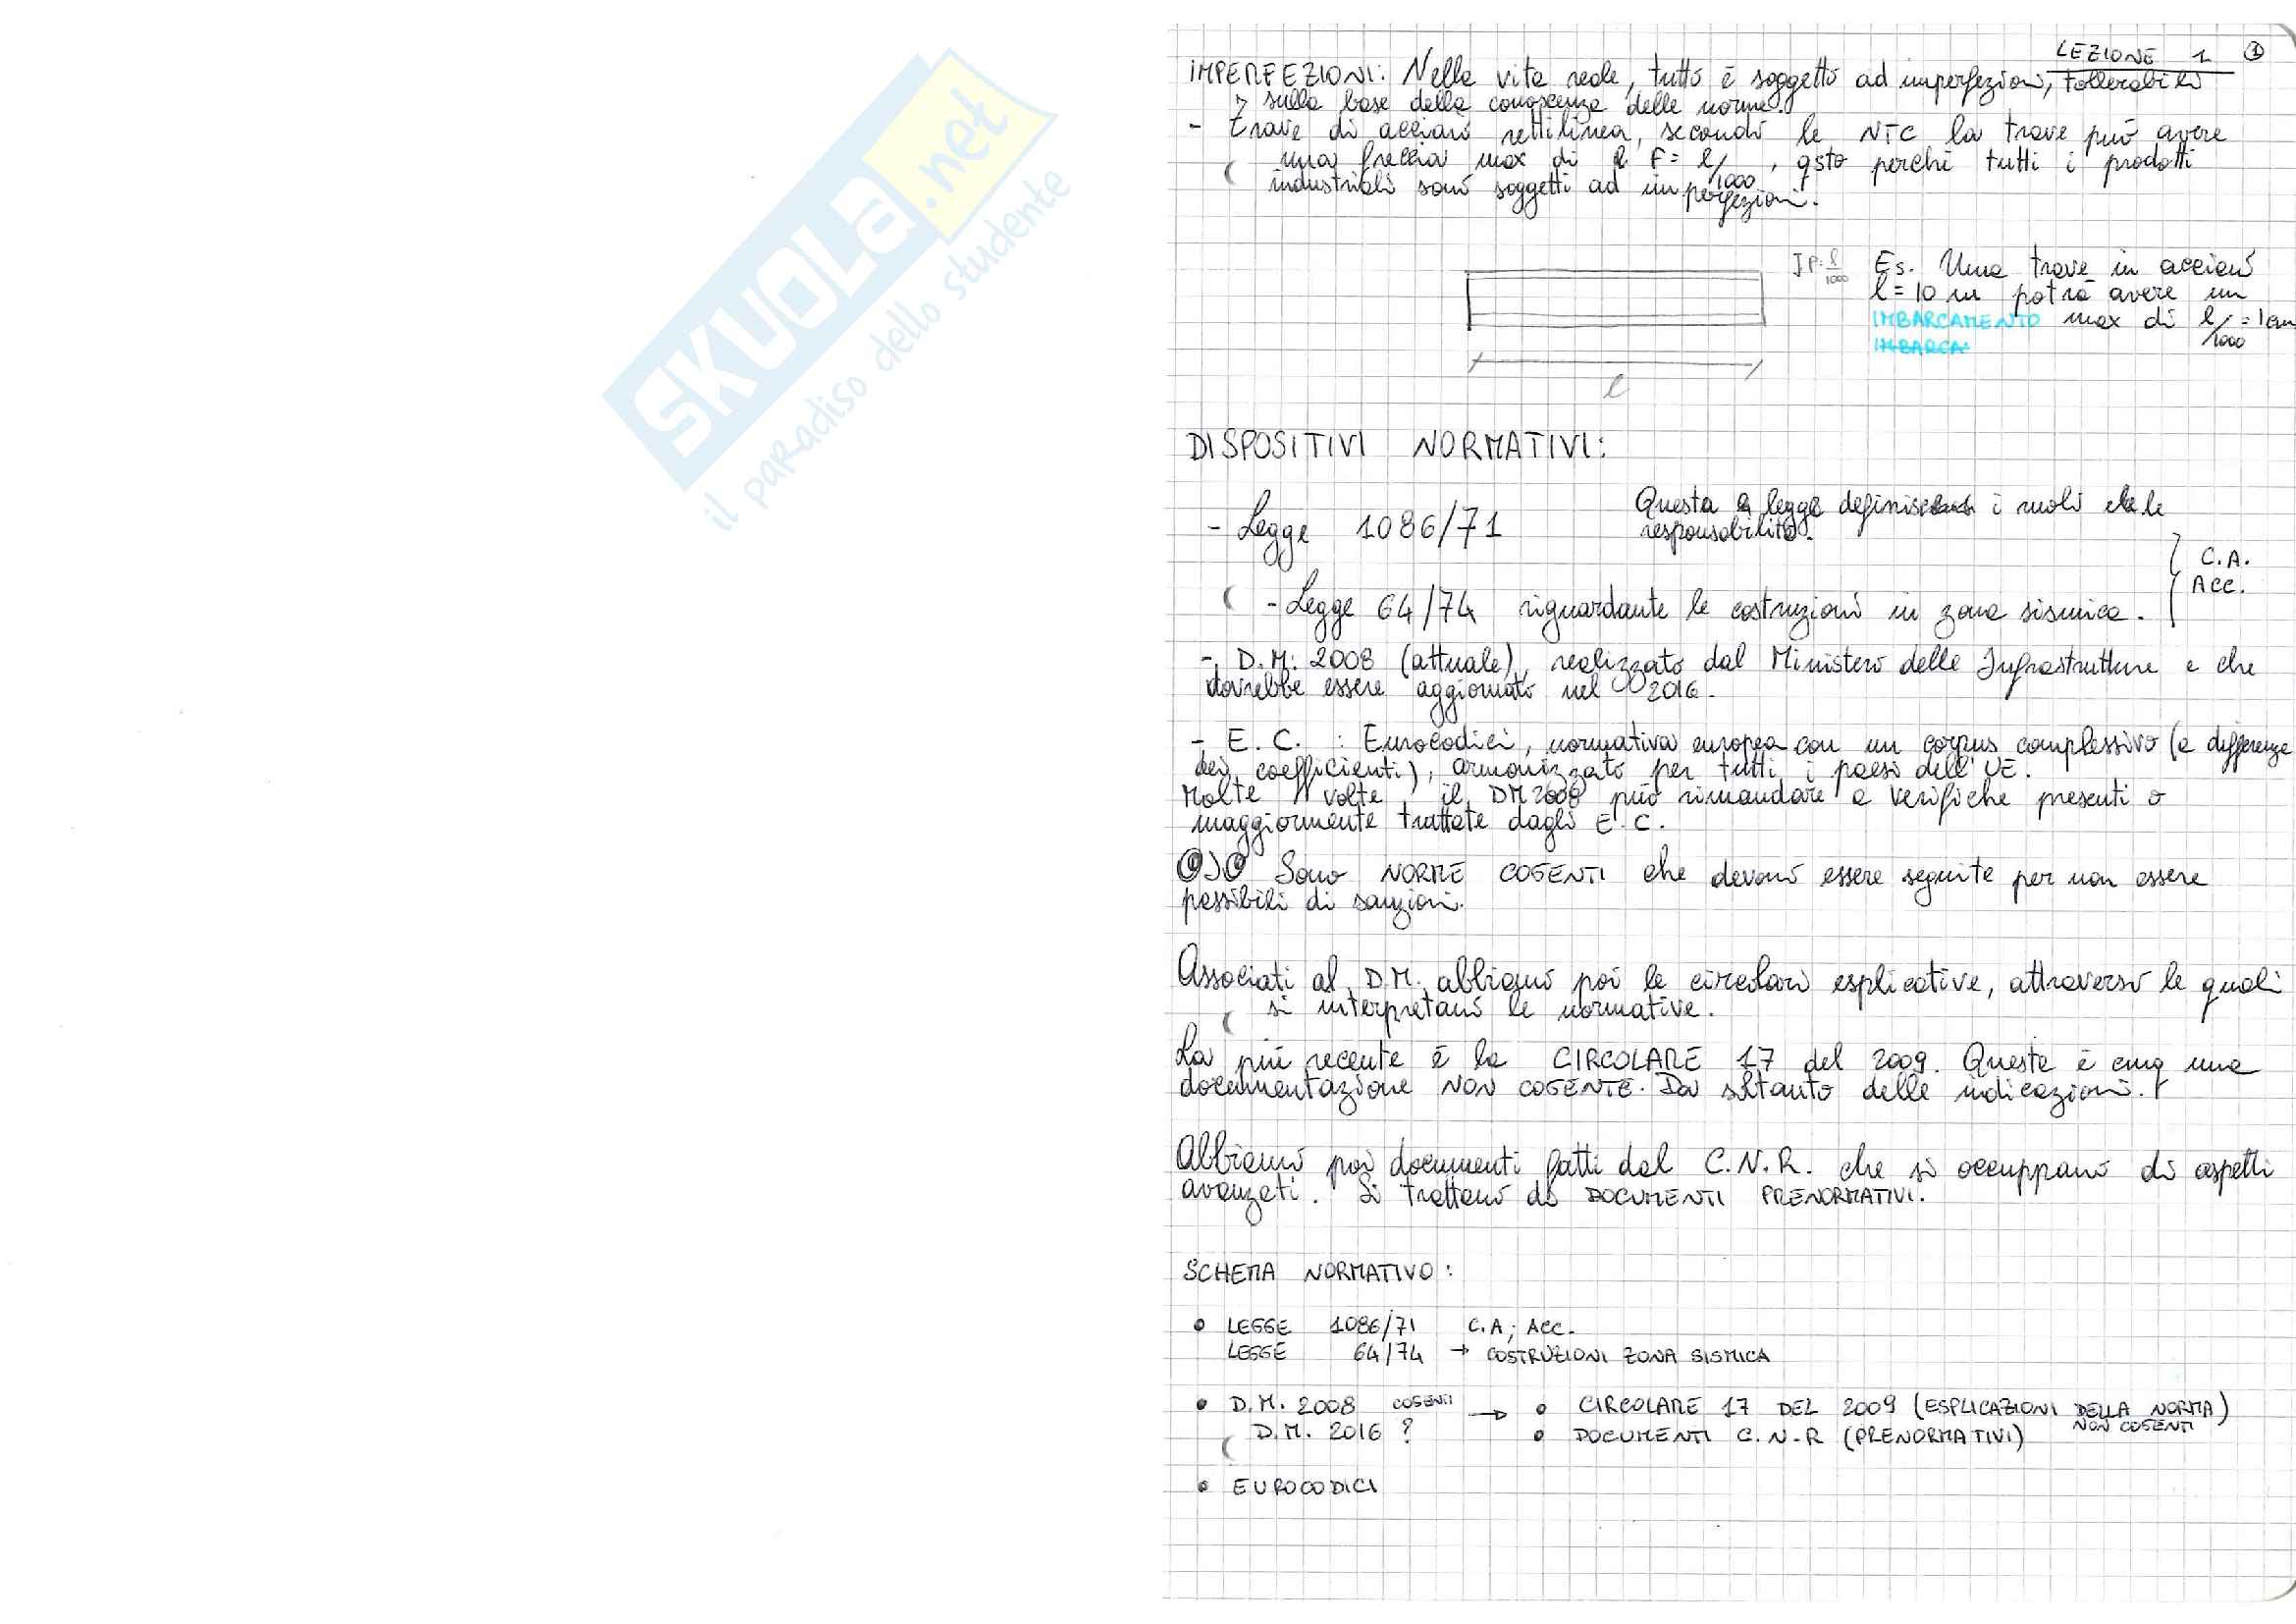 SKUOLA.net
il paradiso dello studente
LEZIONE 1 ①
IMPERFEZIONI: Nella vita reale, tutto è soggetto ad imperfezioni, tollerabili
sulla base della conoscenza delle norme.
- trave di acciaio rettilinea, secondo le NTC la trave può avere
una freccia max di F = l/1000, qsto perchè tutti i prodotti
industriali sono soggetti ad imperfezioni.
l/1000
Es. Una trave in acciaio
l = 10 m potrà avere un
IMBARCAMENTO max di l/1000 = 1cm
IMBARCA
l
DISPOSITIVI NORMATIVI:
- Legge 1086/71
Questa legge definisce i ruoli e le
responsabilità.
- Legge 64/74 riguardante le costruzioni in zona sismica.
C.A.
Acc.
- D.M. 2008 (attuale), realizzato dal Ministero delle Infrastrutture e che
dovrebbe essere aggiornato nel 2016.
- E.C. : Eurocodici, normativa europea con un corpus complessivo (a differenza
dei coefficienti), armonizzato per tutti i paesi dell'UE.
Molte volte il DM2008 può rimandare a verifiche presenti o
maggiormente trattate dagli E.C.
OJO Sono NORME COGENTI che devono essere seguite per non essere
passibili di sanzioni.
Associati al D.M. abbiamo poi le circolari esplicative, attraverso le quali
si interpretano le normative.
La più recente è la CIRCOLARE 17 del 2009. Questa è cmq una
documentazione NON COGENTE. Da soltanto delle indicazioni.
Abbiamo poi documenti fatti dal C.N.R. che si occuppano di aspetti
avanzati. Si trattano di DOCUMENTI PRENORMATIVI.
SCHEMA NORMATIVO:
• LEGGE 1086/71 C.A; Acc.
LEGGE 64/74 → COSTRUZIONI ZONA SISMICA
• D.M. 2008 COGENTI → • CIRCOLARE 17 DEL 2009 (ESPLICAZIONI DELLA NORMA)
NON COGENTI
D.M. 2016 ? • DOCUMENTI C.N.R (PRENORMATIVI)
• EUROCODICI